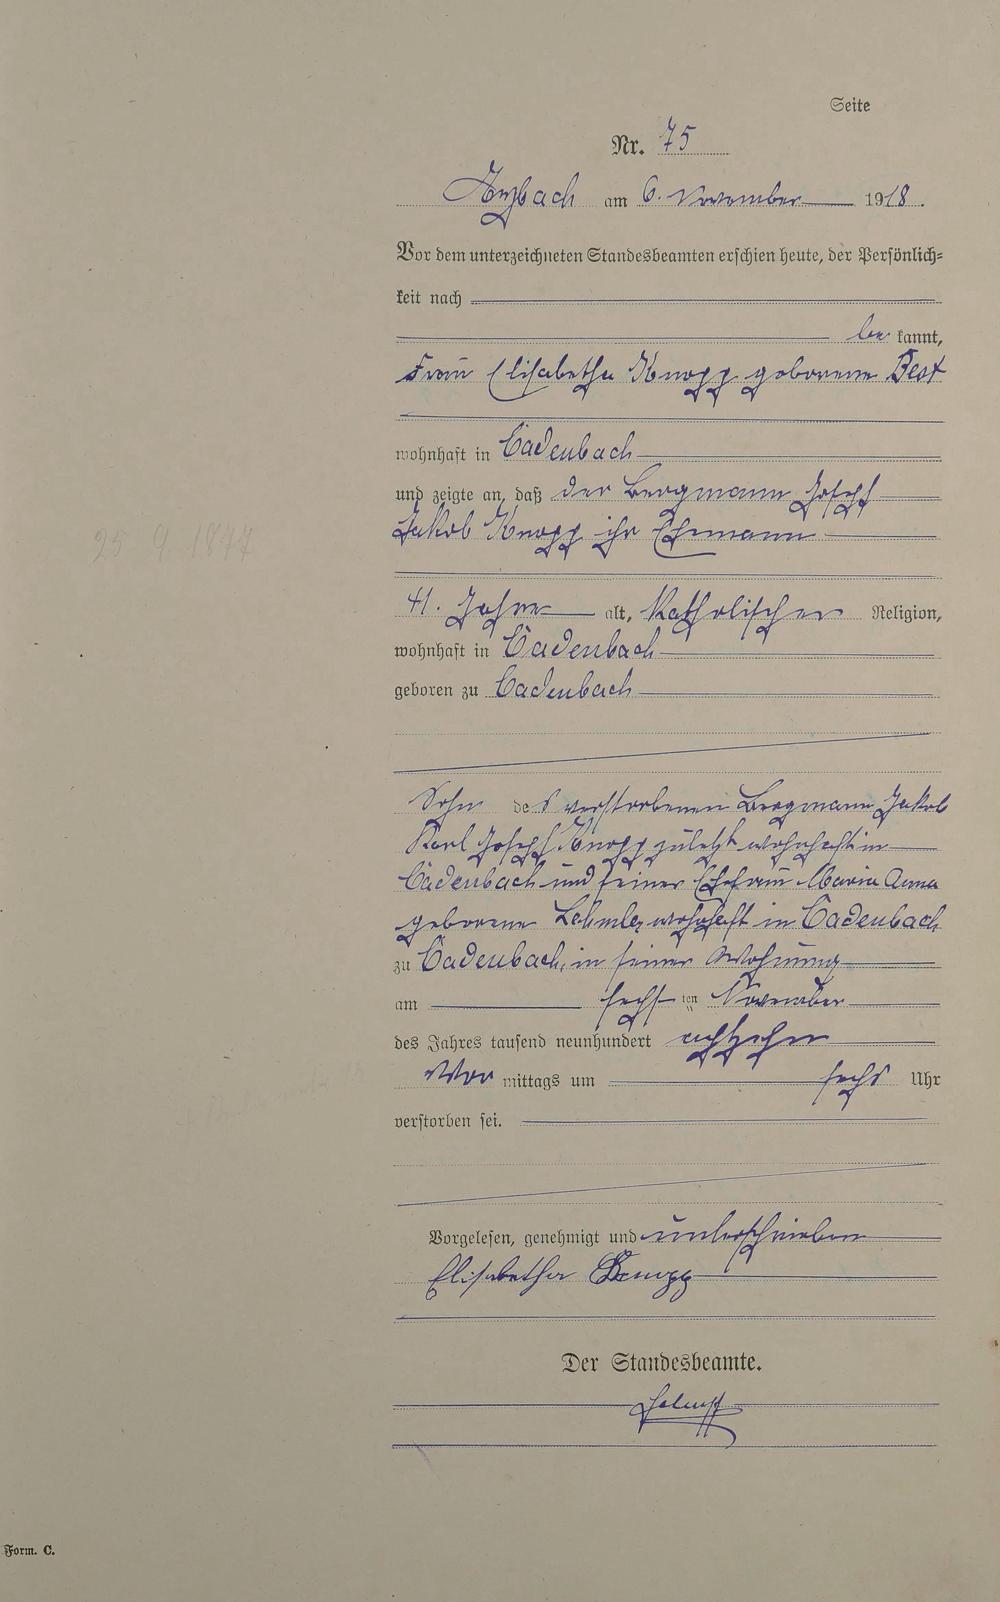 Seite
Nr. 75
Arzbach am 6. November 1918.
Vor dem unterzeichneten Standesbeamten erschien heute, der Persönlich=
keit nach
be kannt,
Frau Elisabetha Knopp geborene Best
wohnhaft in Cadenbach
und zeigte an, daß der Bergmann Joseph
Jakob Knopp ihr Ehemann
25 9 1877
41. Jahre alt, Katholischer Religion,
wohnhaft in Cadenbach
geboren zu Cadenbach
Sohn des verstorbenen Bergmann Jakob
Karl Joseph Knopp zuletzt wohnhaft in
Cadenbach und seiner Ehefrau Maria Anna
geborene wohnhaft in Cadenbach
zu Cadenbach, in seiner Wohnung
am sechsten November
des Jahres tausend neunhundert achtzehn
Vor mittags um sechs Uhr
verstorben sei.
Vorgelesen, genehmigt und unterschrieben
Elisabetha Knopp
Der Standesbeamte.
Form. C.